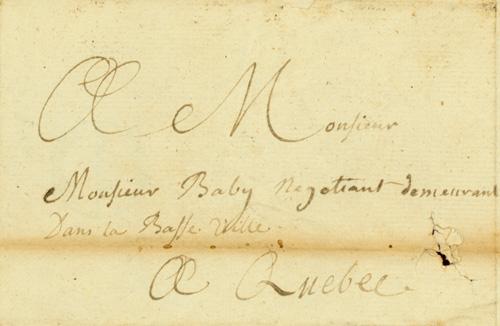 A Monsieur
Monsieur Baby Negotiant demeurant
Dans la Basse Ville.
A Quebec.